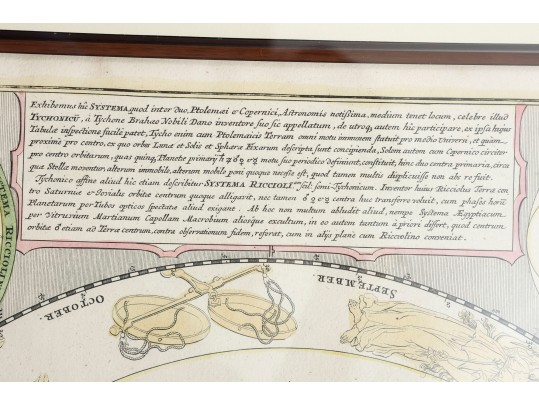 Exhibemus hîc SYSTEMA, quod inter duo, Ptolemaei & Copernici, Astronomis notissima, medium tenet locum, celebre illud
TYCHONICŪ, à Tychone Brahao Nobili Dano inventore suo sic appellatum, de utroq, autem hic participare, ex ipsa hujus
Tabulæ inspectione facile patet, Tycho enim cum Ptolemaicis Terram omni motu immunem statuit pro medio Universi, et quam
proximè pro centro, ex quo orbis Lunæ et Solis et Sphæræ Fixarum descripta sunt concipienda, Solem autem cum Copernico circiter
pro centro orbitarum, quas quinq, Planetæ primarij ♄ ♃ ♂ ♀ ☿ motu suo periodico definiunt, constituit, hinc duo centra primaria, circa
quæ Stellæ moventur, alterum immobile, alterum mobile poni quoque necesse est, quod tamen multis displicuisse non abs re fuit.
Tychonico affine aliud hic etiam describitur SYSTEMA RICCIOLI, scil: semi-Tychonicum. Inventor hujus Ricciolus Terræ cen
tro Saturniæ & Jovialis orbitæ centrum quoque alligavit, nec tamen ♂ ♀ ☿ contra huc transferri voluit, cum phases horū
Planetarum per Tubos opticos spectatæ aliud exigant. Ab hoc non multum abludit aliud, nempe Systema Ægyptiacum
per Vitruvium Martianum Capellam Macrobium aliosque excultum, in eo autem tantum à priori differt, quod centrum
orbitæ ♂ etiam ad Terræ centrum, contra observationum fidem, referat, cum in alijs planè cum Ricciolino conveniat.
TEMA RICCIOLI
OCTOBER.
SEPTEMBER.